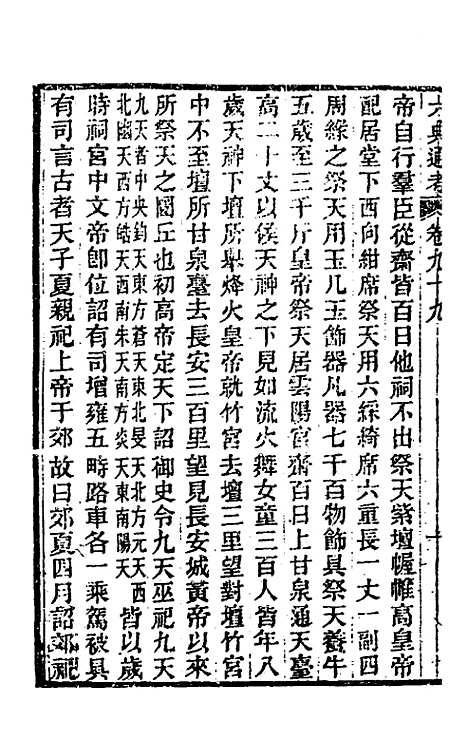 六典通考 卷九十九
帝自行羣臣從齋皆百日他祠不出祭天紫壇幄帷高皇帝
配居堂下西向紺席祭天用六綵綺席六重長一丈一副四
周緣之祭天用玉几玉飾器凡器七千百物飾具祭天養牛
五歲至三千斤皇帝祭天居雲陽宮齋百日上甘泉通天臺
高三十丈以候天神之下見如流火舞女童三百人皆年八
歲天神下壇所舉烽火皇帝就竹宮去壇三里望對壇竹宮
中不至壇所甘泉臺去長安三百里望見長安城黃帝以來
所祭天之圜丘也初高帝定天下詔御史令九天巫祀九天
九天者中央鈞天東方蒼天東北旻天北方元天西
北幽天西方皓天西南朱天南方炎天東南陽天
皆以歲
時祠宮中文帝即位詔有司增雍五畤路車各一乘駕被具
有司言古者天子夏親祀上帝于郊故曰郊夏四月詔郊祀